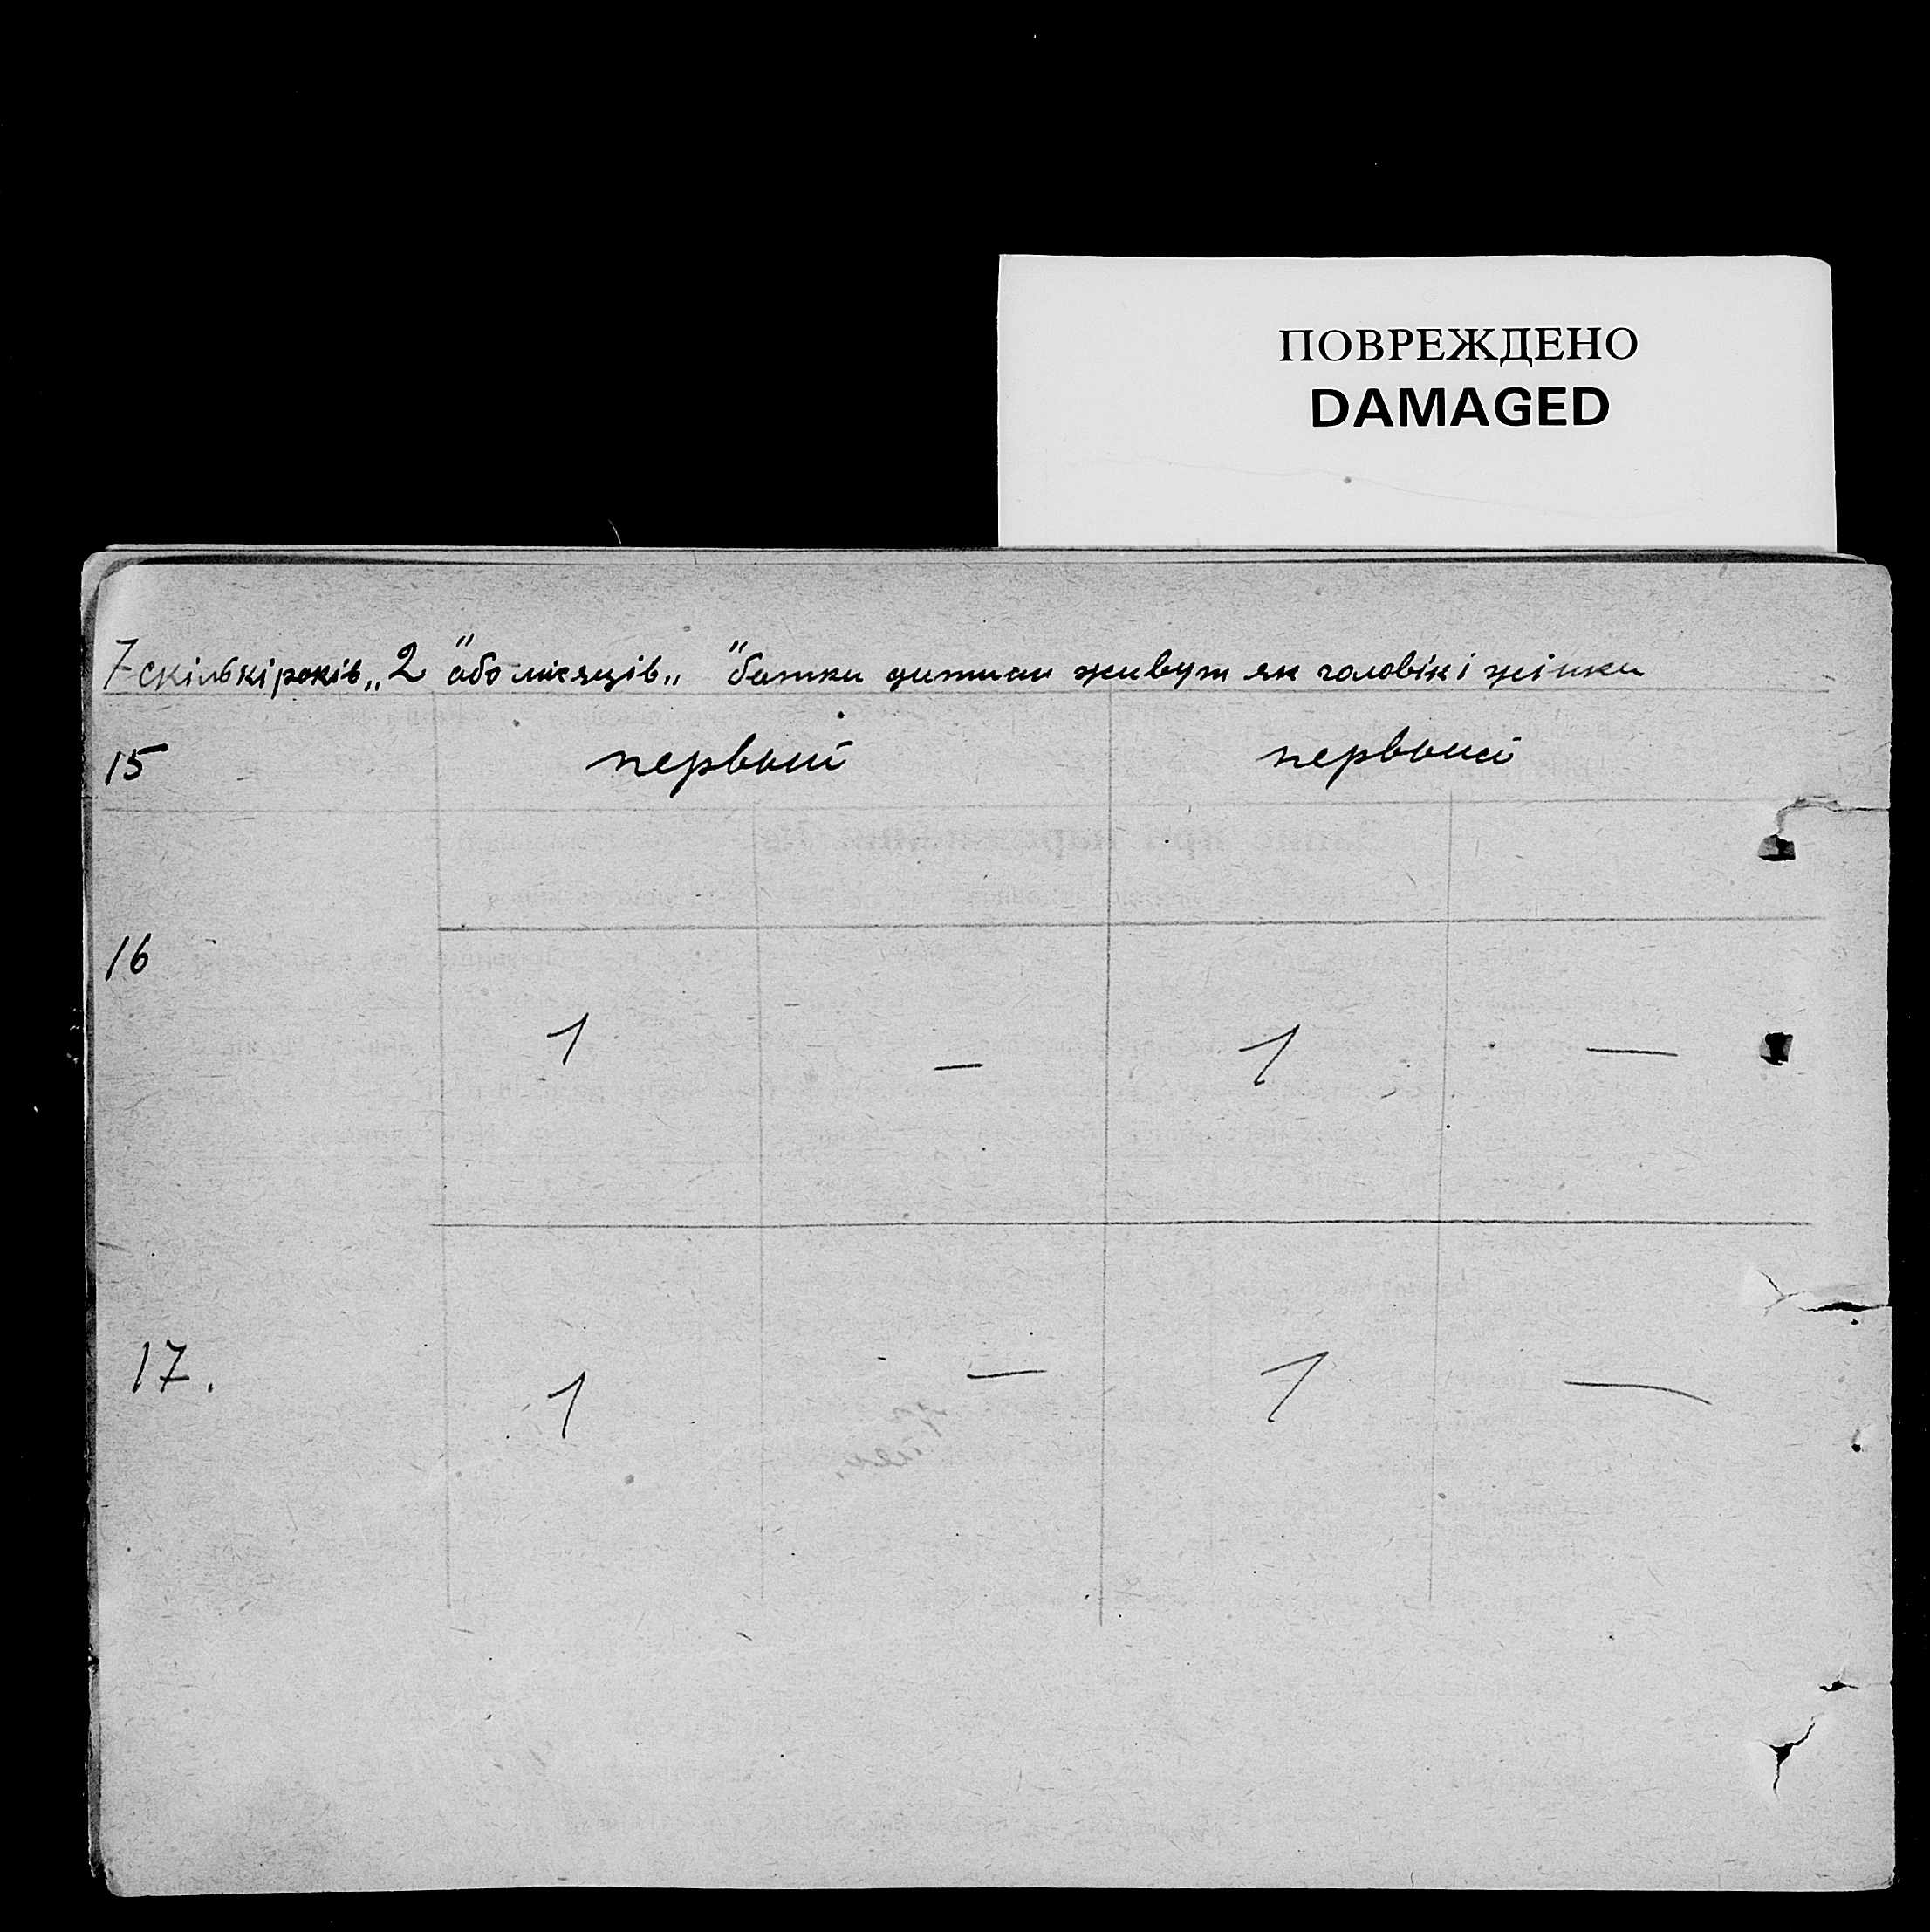 ПОВРЕЖДЕНО
DAMAGED
7 скількі років „2" або місяців „ " батки дитини живут як чоловік і жінка
15 первый первый
16
1 — 1 —
17. 1 — 1 —